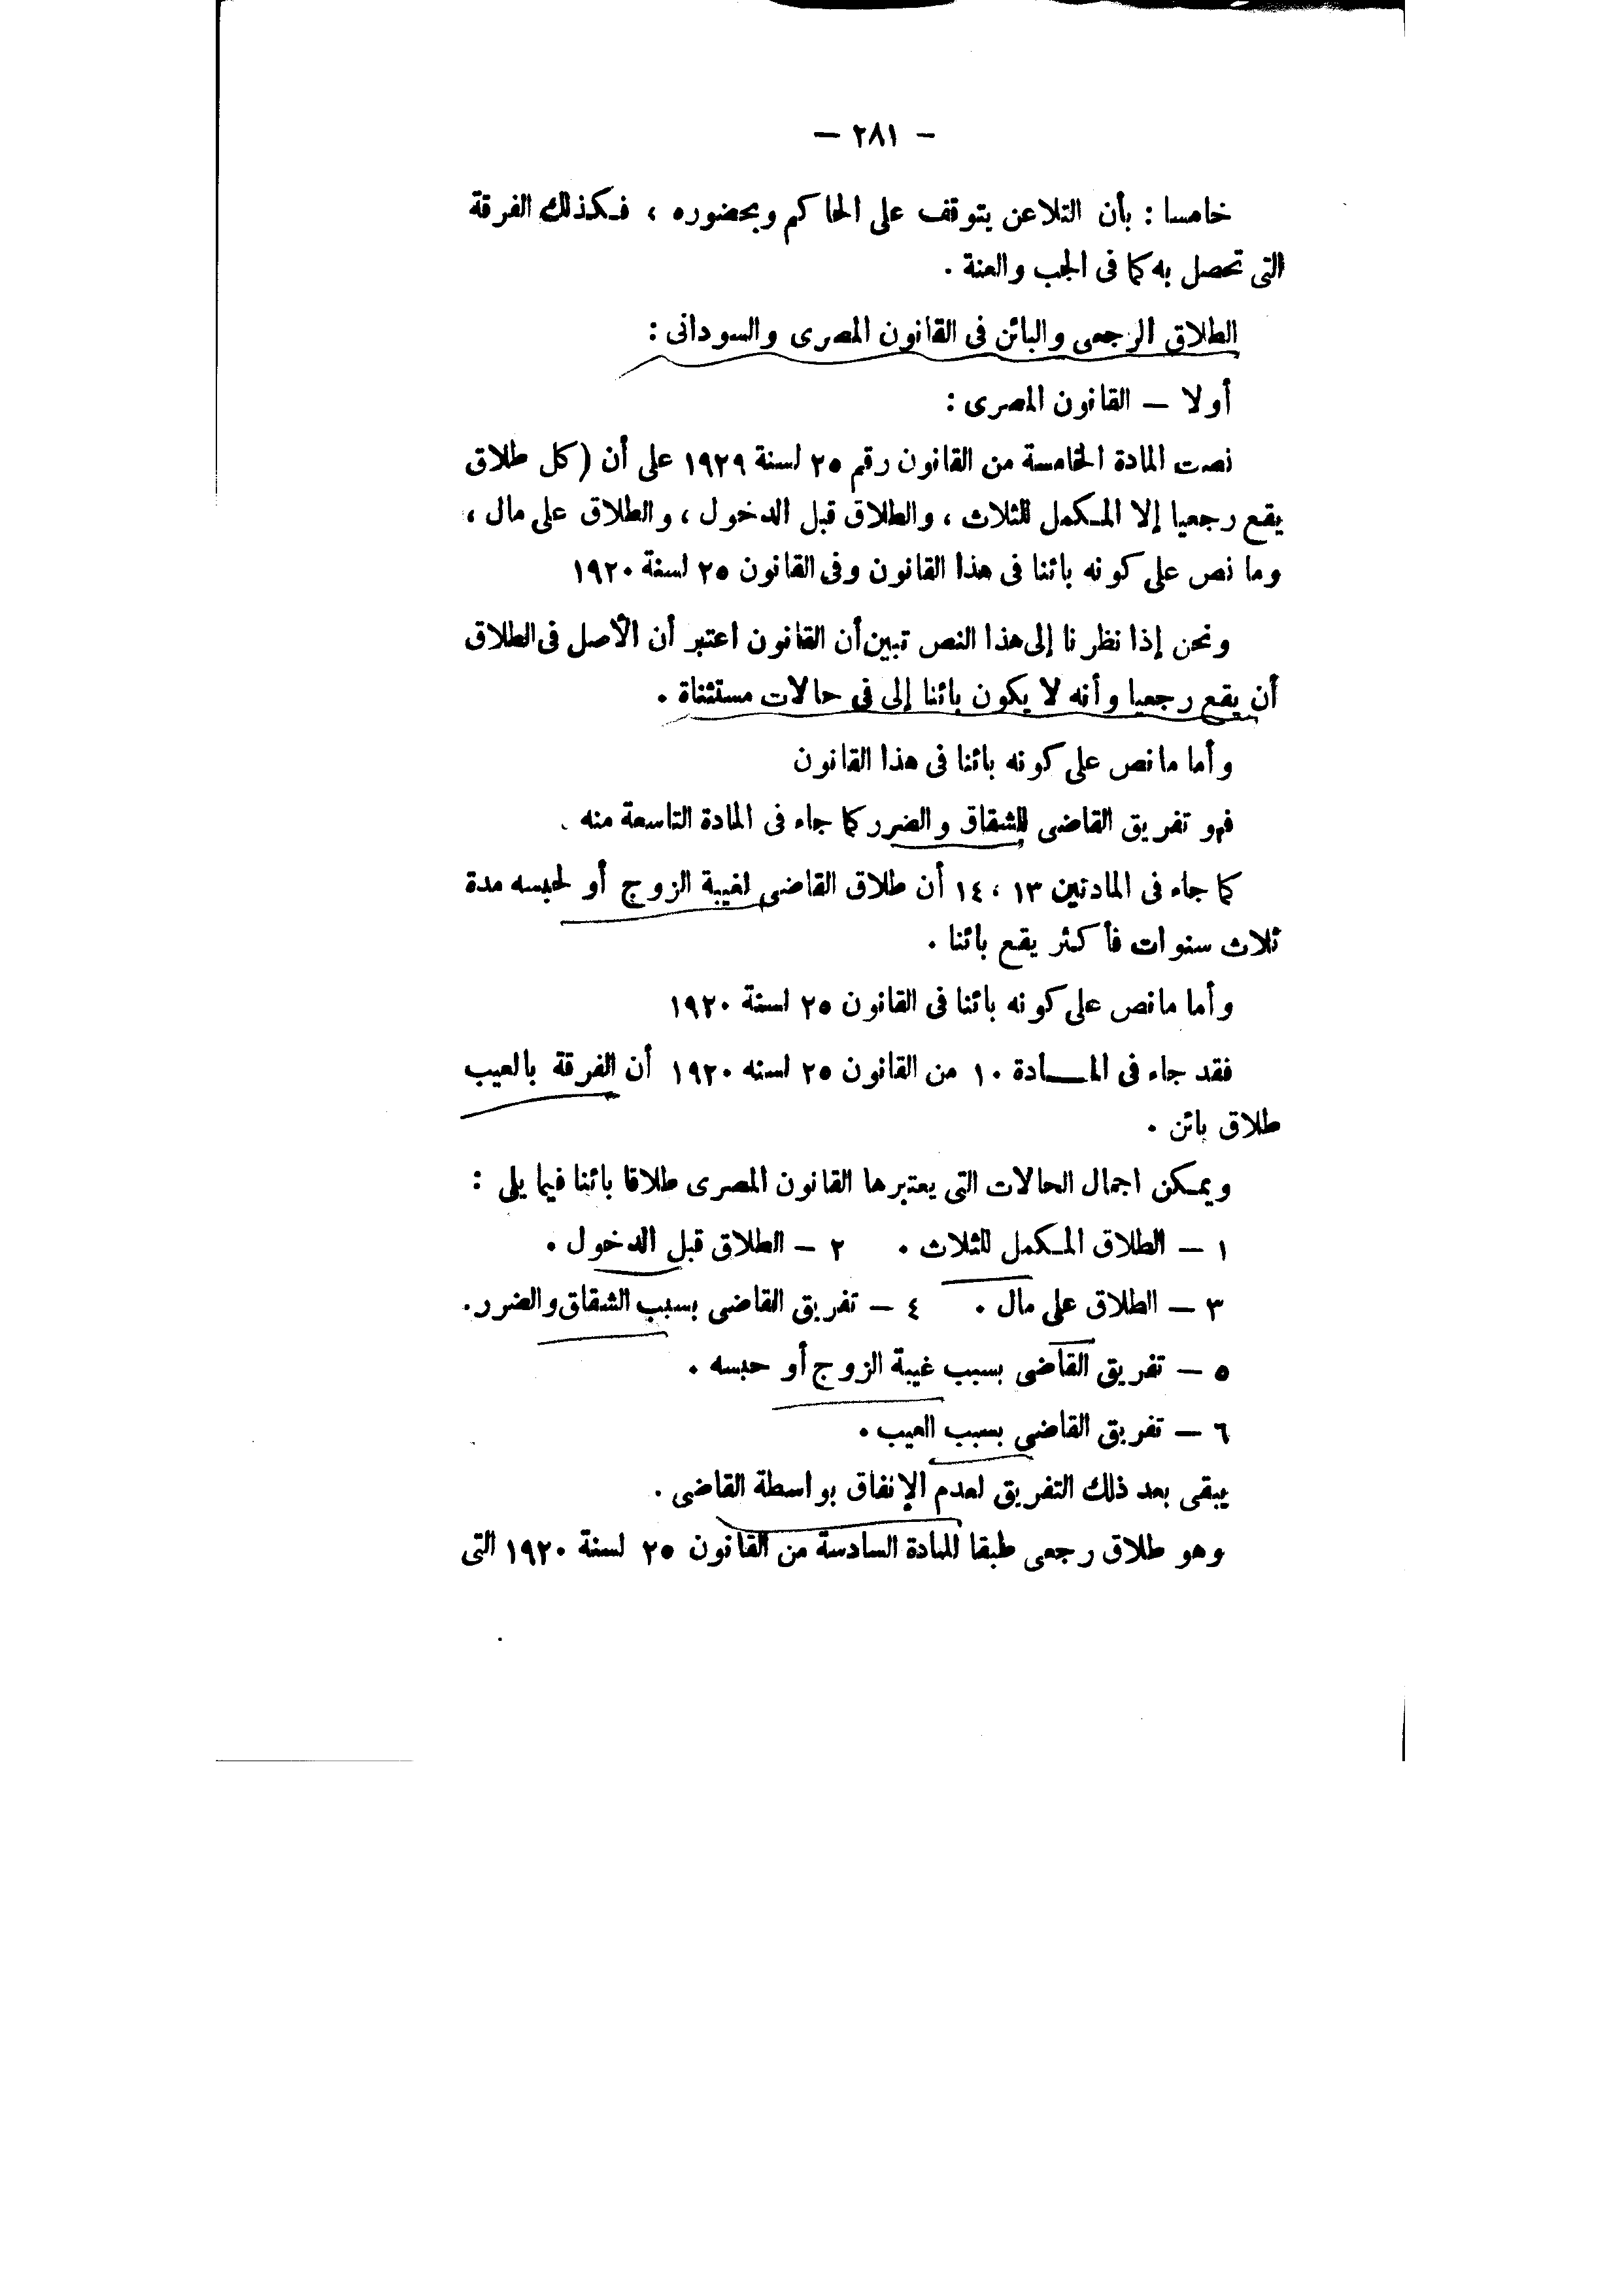 — ٢٨١ —
خامسا : بأن التلاعن يتوقف على الحاكم وبحضوره ، فكذلك الفرقة
التى تحصل به كما فى الجب والعنة .
الطلاق الرجعى والبائن فى القانون المصرى والسودانى :
أولا — القانون المصرى :
نصت المادة الخامسة من القانون رقم ٢٥ لسنة ١٩٢٩ على أن ( كل طلاق
يقع رجعيا إلا المكمل للثلاث ، والطلاق قبل الدخول ، والطلاق على مال ،
وما نص على كونه بائنا فى هذا القانون وفى القانون ٢٥ لسنة ١٩٢٠
ونحن إذا نظرنا إلى هذا النص تبين أن القانون اعتبر أن الأصل فى الطلاق
أن يقع رجعيا وأنه لا يكون بائنا إلى فى حالات مستثناة .
وأما ما نص على كونه بائنا فى هذا القانون
فهو تفريق القاضى للشقاق والضرر كما جاء فى المادة التاسعة منه .
كما جاء فى المادتين ١٣ ، ١٤ أن طلاق القاضى لغيبة الزوج أو لحبسه مدة
ثلاث سنوات فأكثر يقع بائنا .
وأما ما نص على كونه بائنا فى القانون ٢٥ لسنة ١٩٢٠
فقد جاء فى المـــادة ١٠ من القانون ٢٥ لسنه ١٩٢٠ أن الفرقة بالعيب
طلاق بائن .
ويمكن اجمال الحالات التى يعتبرها القانون المصرى طلاقا بائنا فيما يلى :
١ — الطلاق المكمل للثلاث . ٢ — الطلاق قبل الدخول .
٣ — الطلاق على مال . ٤ — تفريق القاضى بسبب الشقاق والضرر .
٥ — تفريق القاضى بسبب غيبة الزوج أو حبسه .
٦ — تفريق القاضى بسبب العيب .
يبقى بعد ذلك التفريق لعدم الإنفاق بواسطة القاضى .
وهو طلاق رجعى طبقا للمادة السادسة من القانون ٢٥ لسنة ١٩٢٠ التى